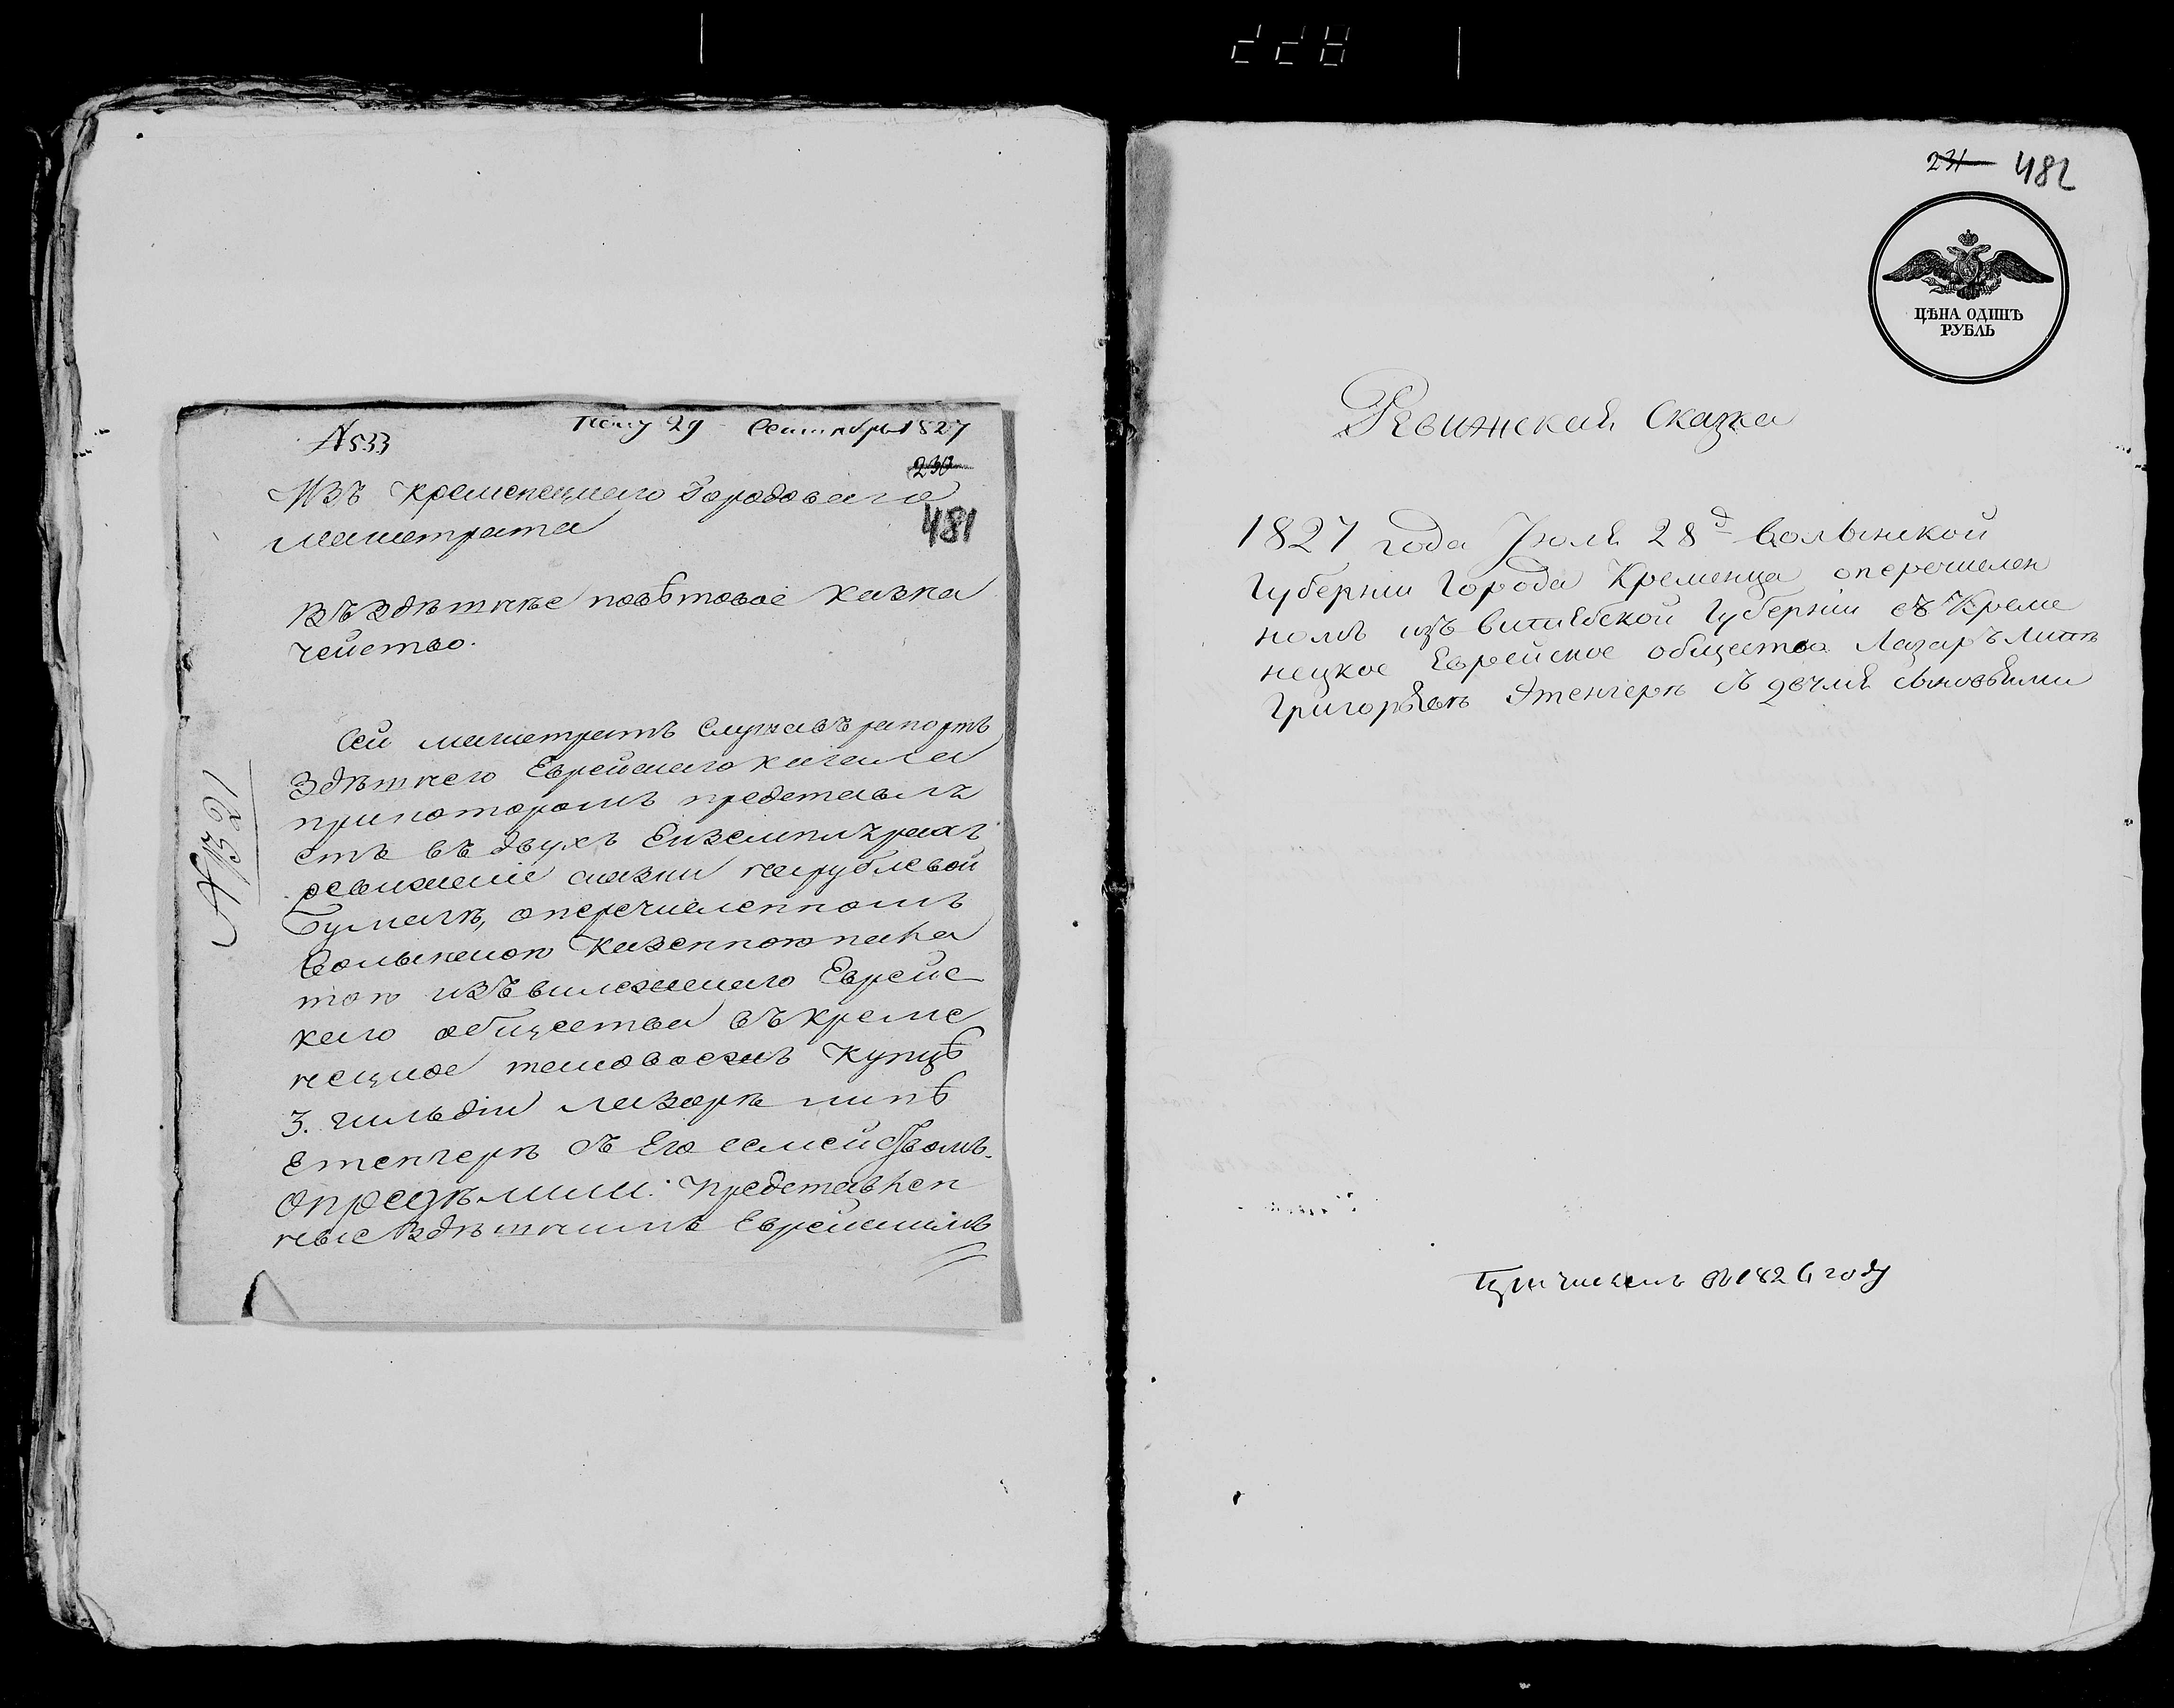 № 533
29 Сентября 1827
230
481
Изъ Кременецкаго Городоваго
магистрата
Въ Здѣшнѣе повѣтовое казна
чейство.
№ 321
Сей магистратъ Слушавъ рапортъ
Здѣшнего Еврейскаго кагала
прикоторомъ представлѣ
етъ въ двухъ Екземплярахъ
ревижскіе сказки нарублевой
бумагѣ, оперечисленномъ
Волынскою Казенною пала
тою изъ Еврейс
каго общества въ Креме
нецкое купцѣ
3. гильдіи Лазарѣ липѣ
Етенгерѣ съ Его семействомъ.
Опредѣлили: Представлен
ные Здѣшнимъ Еврейскимъ
231 482
ЦѢНА ОДИНЪ
РУБЛЬ
Ревижская Сказка
1827 года Іюля 28д Волынской
Губерніи Города Кременца оперечислен
номъ изъ витебской Губерніи въ Креме
нецкое Еврейское общество Лазарѣ Липѣ
Григорьевѣ Этенгерѣ съ двумя сыновьями
Причисленъ въ 1826 году